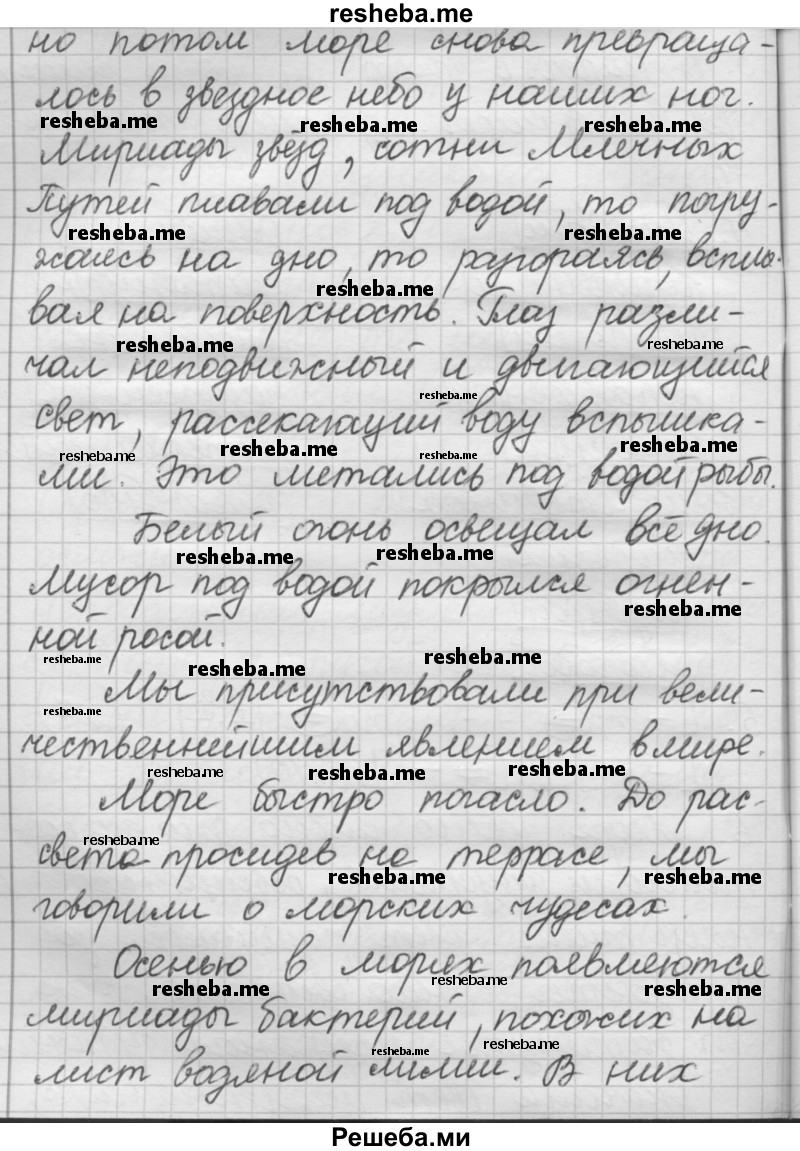 resheba.me
но потом море снова превраща-
лось в звездное небо у наших ног.
resheba.me resheba.me resheba.me
Мириады звёзд, сотни Млечных
Путей плавали под водой, то погру-
resheba.me resheba.me
жаясь на дно, то разгораясь, всплы-
resheba.me
вая на поверхность. Глаз разли-
resheba.me resheba.me
чал неподвижный и двигающийся
resheba.me
свет, рассекающий воду вспышка-
resheba.me resheba.me resheba.me resheba.me
ми. Это метались под водой рыбы.
Белый огонь освещал всё дно.
resheba.me resheba.me
Мусор под водой покрылся огнен-
resheba.me
ной росой.
resheba.me resheba.me resheba.me
Мы присутствовали при вели-
resheba.me
чественнейшим явлением в мире.
resheba.me resheba.me resheba.me
Море быстро погасло. До рас-
resheba.me
света просидев на террасе, мы
resheba.me resheba.me
говорили о морских чудесах.
Осенью в морях появляются
resheba.me resheba.me resheba.me
мириады бактерий, похожих на
resheba.me resheba.me
лист водяной лилии. В них
Решеба.ми